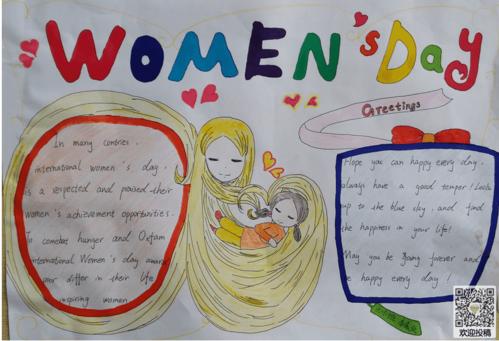 WOMEN'S DAY
In many contries.
international women's day.
is a respected and praised their
women's achievement opportunities.
To comebat hunger and Oxfam
international Women's day award
your differ in their life
inspiring women
Greetings
Hope you can happy every day.
always have a good temper! Look
up to the blue sky, and find
the happiness in your life!
May you be young forever and
be happy every day!
欢迎投稿